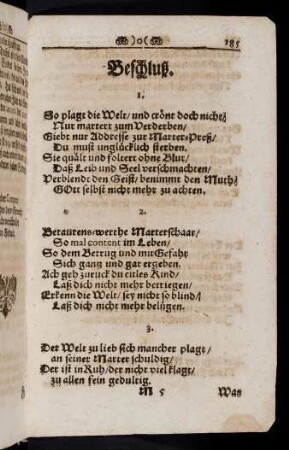 )o( 185
Beschluß.
1.
So plagt die Welt/ und crönt doch nicht/
Nur martert zum Verderben/
Giebt nur Addresse zur Marter-Preß/
Du must unglücklich sterben.
Sie quält und foltert ohne Blut/
Daß Leib und Seel verschmachten/
Verblendt den Geist/ benimmt den Muth/
GOtt selbst nicht mehr zu achten.
2.
Betaurens-werthe Marterschaar/
So mal content im Leben/
So dem Betrug und mit Gefahr
Sich gantz und gar ergeben.
Ach geh zurück du eitles Kind/
Laß dich nicht mehr betriegen/
Erkenn die Welt/ sey nicht so blind/
Laß dich nicht mehr belügen.
3.
Der Welt zu lieb sich mancher plagt/
an seiner Marter schuldig/
Der ist in Ruh/ der nicht viel klagt/
zu allen fein gedultig.
M 5 Was